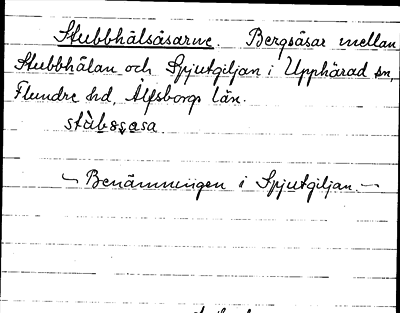 Stubbhålsåsarne. Bergsåsar mellan
Stubbhålan och Spjutgiljan i Upphärad sn,
Flundre hd, Älfsborgs län.
~ Benämningen i Spjutgiljan. ~